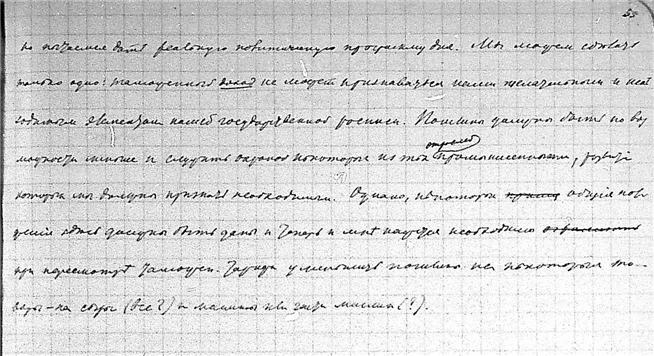 55
но пытаемся дать реальную политическую программу дня. Мы можем сказать
только одно: таможенный доход не может признаваться нами желательным и необ
ходимым элементом нашей государственной росписи. Пошлины должны быть по воз
можности меньше и служить охраной некоторых из тех отраслей промышленности,
которые мы должны признать необходимыми. Однако, некоторые общие
здесь должны быть даны и теперь и мне кажется необходимо
при пересмотре тамож. тарифа уменьшить пошлины на некоторые то
вары – на сырье (все?) и машины или части машин (?).